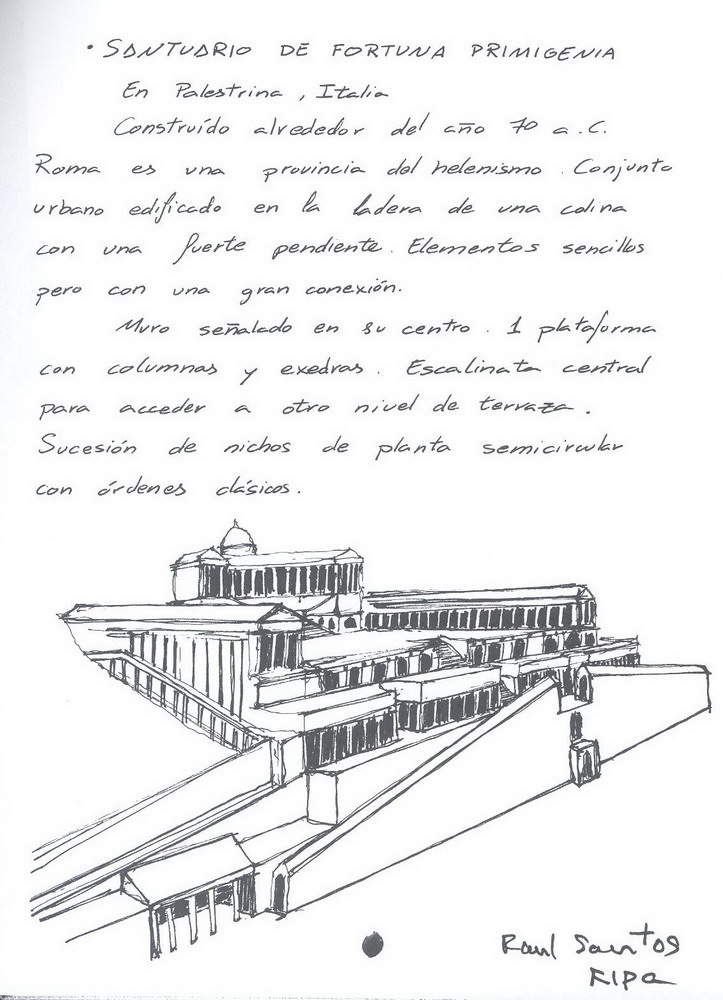 • SANTUARIO DE FORTUNA PRIMIGENIA
En Palestrina, Italia
Construído alrededor del año 70 a.C.
Roma es una provincia del helenismo. Conjunto
urbano edificado en la ladera de una colina
con una fuerte pendiente. Elementos sencillos
pero con una gran conexión.
Muro señalado en su centro. 1 plataforma
con columnas y exedras. Escalinata central
para acceder a otro nivel de terraza.
Sucesión de nichos de planta semicircular
con órdenes clásicos.
Raul Santos